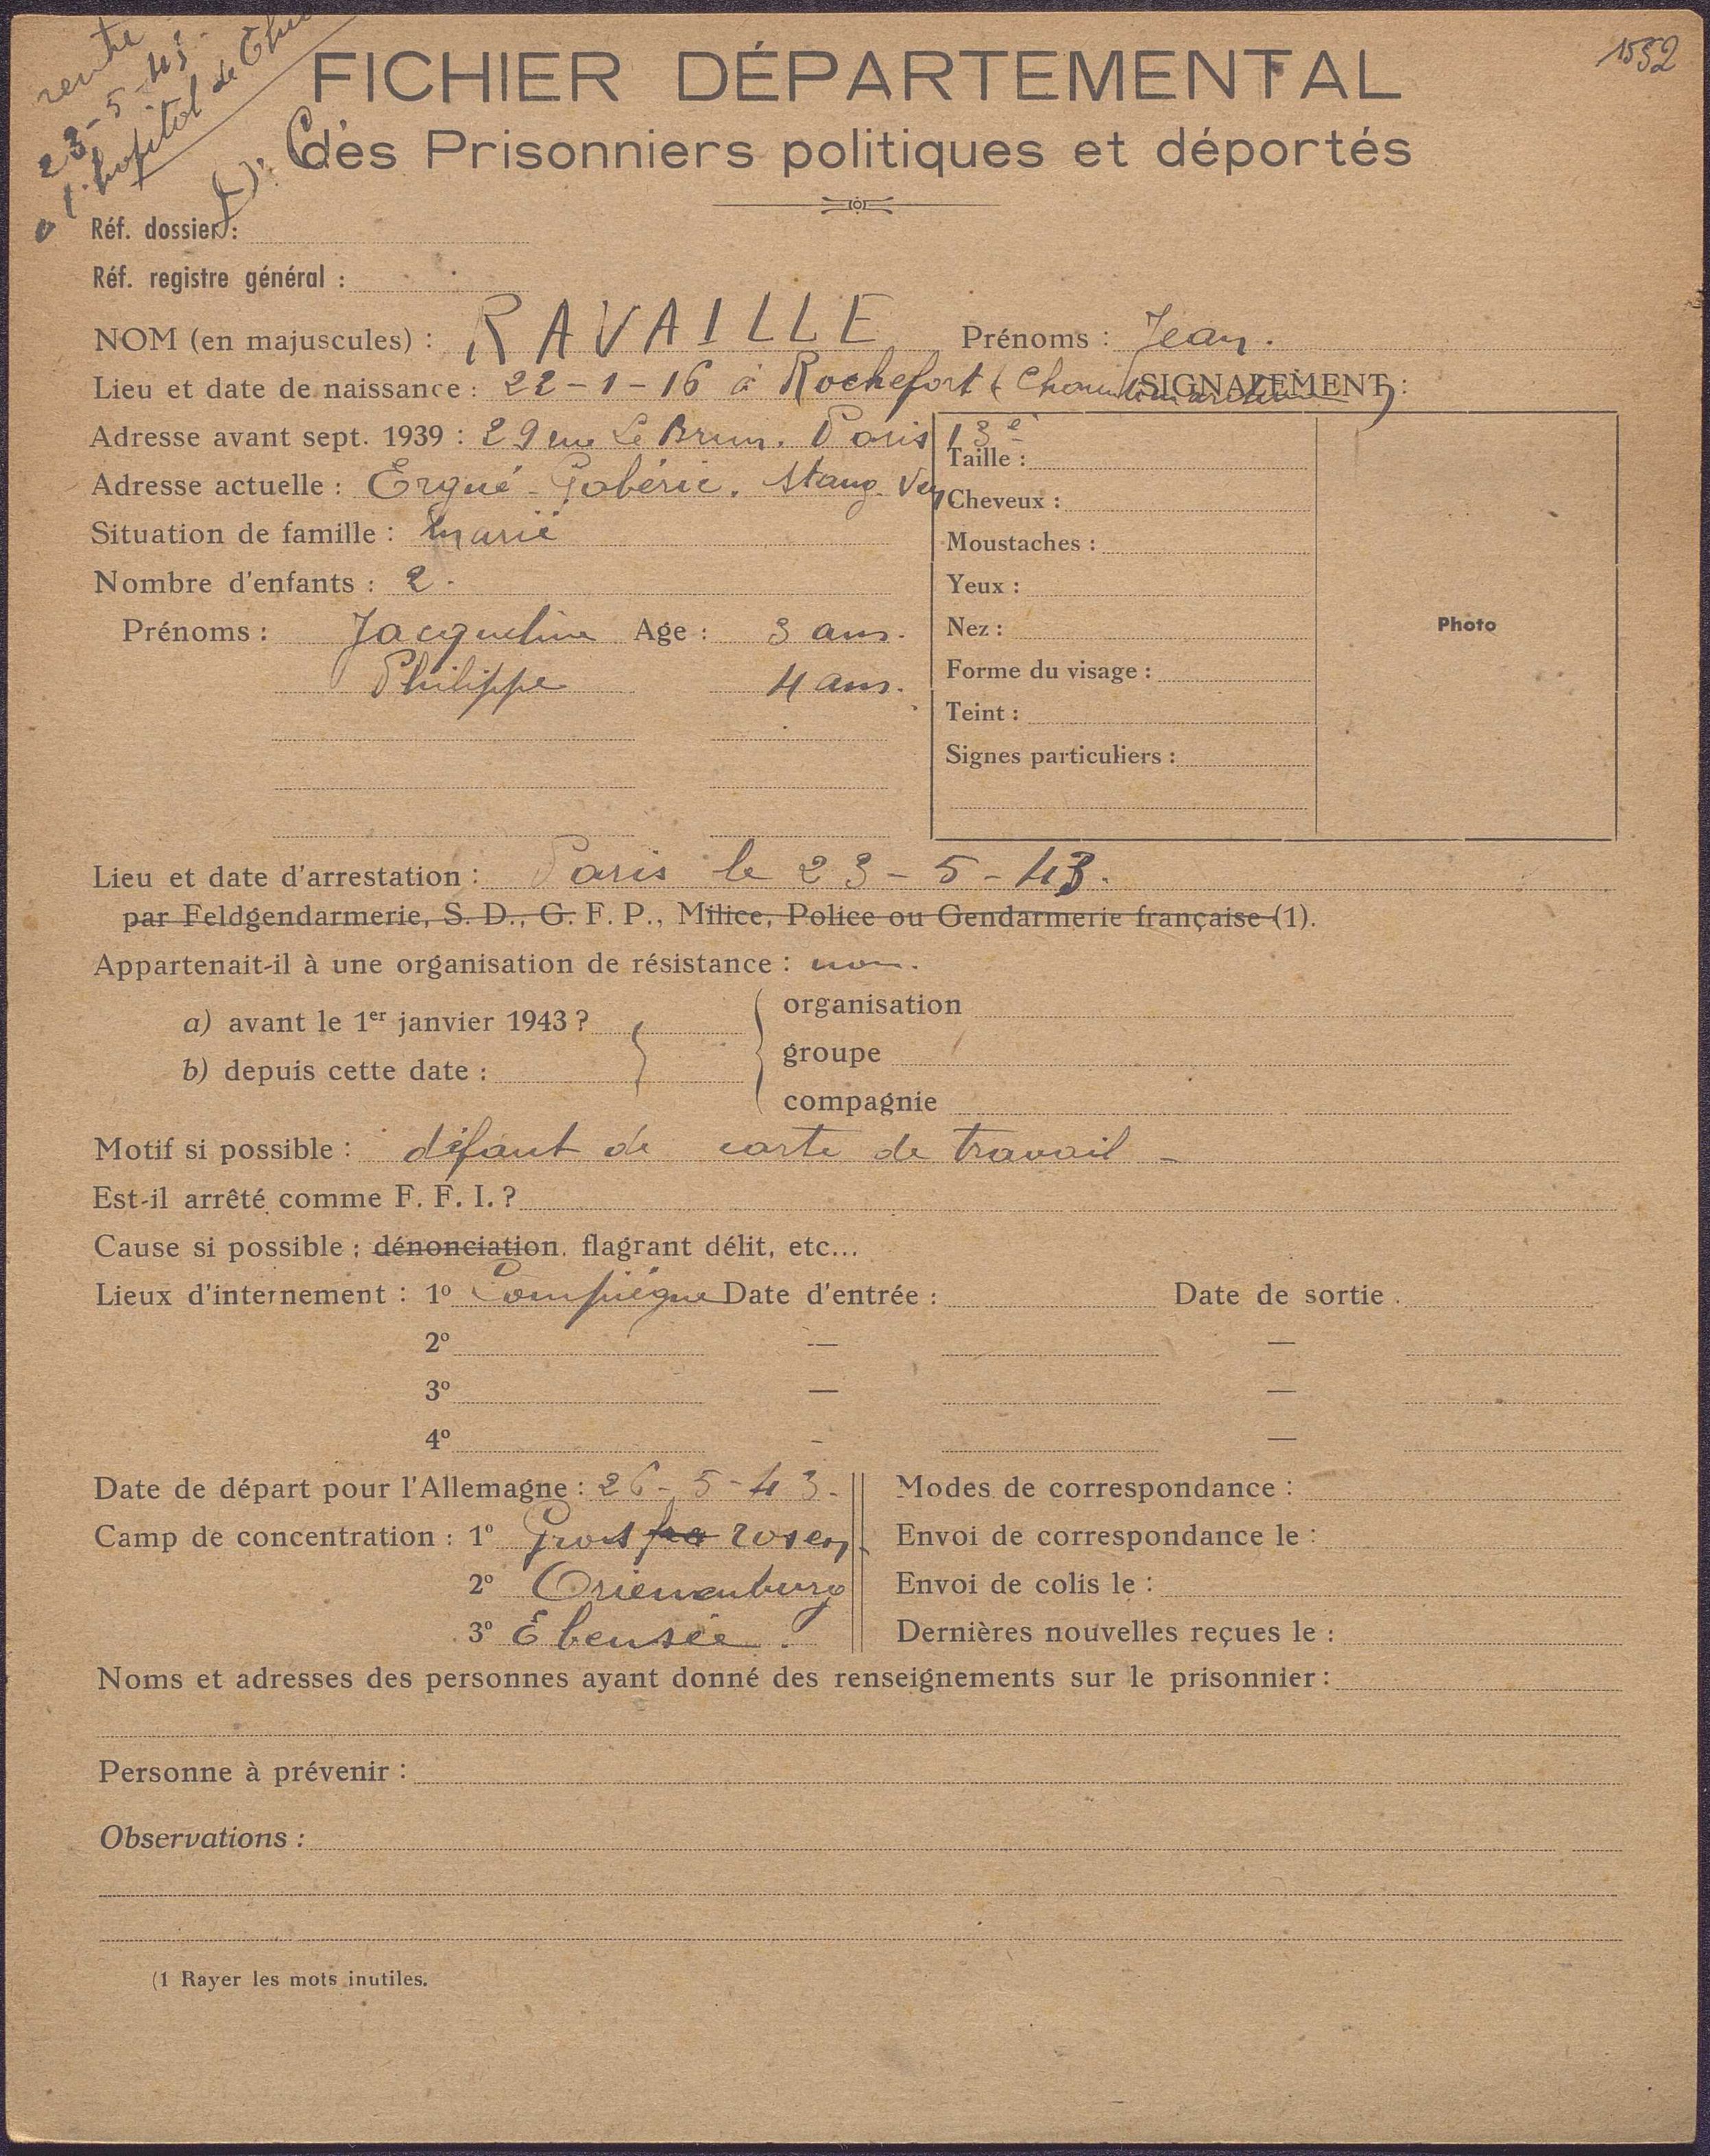 rentré
23-5-45.
à l'hopital de
1592
FICHIER DÉPARTEMENTAL
des Prisonniers politiques et déportés
Réf. dossier :
Réf. registre général :
NOM (en majuscules) : RAVAILLE Prénoms : Jean.
Lieu et date de naissance : 22-1-16 à Rochefort (
SIGNALEMENT :
Adresse avant sept. 1939 : 29 rue Le Brun. Paris 13e
Adresse actuelle : Ergué-Gabéric. Stang Ven
Situation de famille : marié
Nombre d'enfants : 2.
Prénoms : Jacqueline Age : 3 ans.
Philippe 4 ans.
Taille :
Cheveux :
Moustaches :
Yeux :
Nez :
Forme du visage :
Teint :
Signes particuliers :
Photo
Lieu et date d'arrestation : Paris le 23-5-43.
par Feldgendarmerie, S. D., G. F. P., Milice, Police ou Gendarmerie française (1).
Appartenait-il à une organisation de résistance : non.
a) avant le 1er janvier 1943 ?
b) depuis cette date :
organisation
groupe
compagnie
Motif si possible : défaut de carte de travail -
Est-il arrêté comme F. F. I. ?
Cause si possible : dénonciation. flagrant délit, etc...
Lieux d'internement : 1º Compiègne Date d'entrée : Date de sortie .
2º — —
3º — —
4º - —
Date de départ pour l'Allemagne : 26-5-43.
Camp de concentration : 1º Gross rosen
2º Orienenburg
3º Ebensée.
Modes de correspondance :
Envoi de correspondance le :
Envoi de colis le :
Dernières nouvelles reçues le :
Noms et adresses des personnes ayant donné des renseignements sur le prisonnier :
Personne à prévenir :
Observations :
(1 Rayer les mots inutiles.